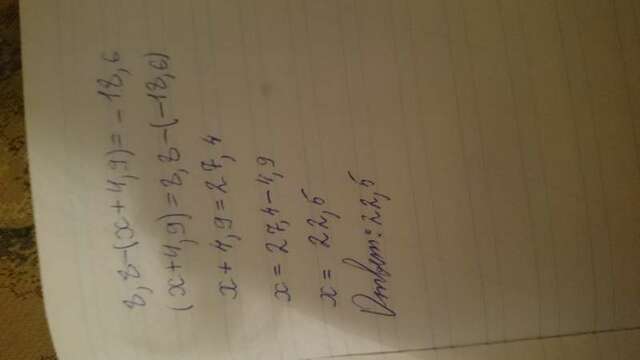 8,8-(x+4,9)=-18,6
(x+4,9)=8,8-(-18,6)
x+4,9=27,4
x=27,4-4,9
x= 22,5
Ответ: 22,5